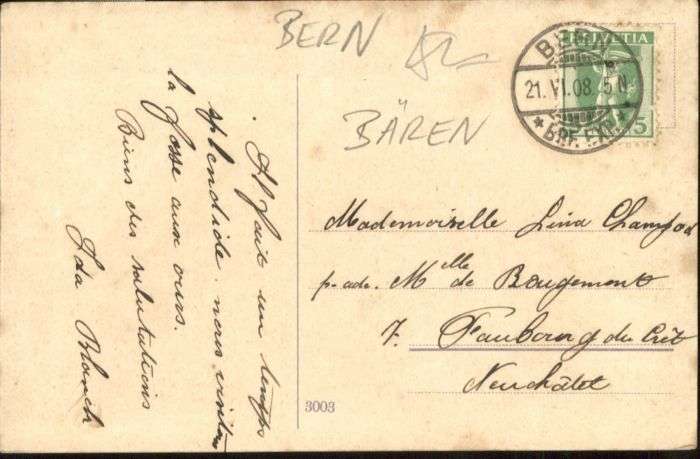 BERN
BÄREN
HELVETIA
5
BERN
21.VI.08. 5 N
BRF. EXP.
Il fait un temps
splendide. nous visitons
la fosse aux ours.
Biens des salutations
Ida Blanch
Mademoiselle Lina
p. adr. Mlle de Bougemont
7. Faubourg du Crêt
Neuchâtel
3003